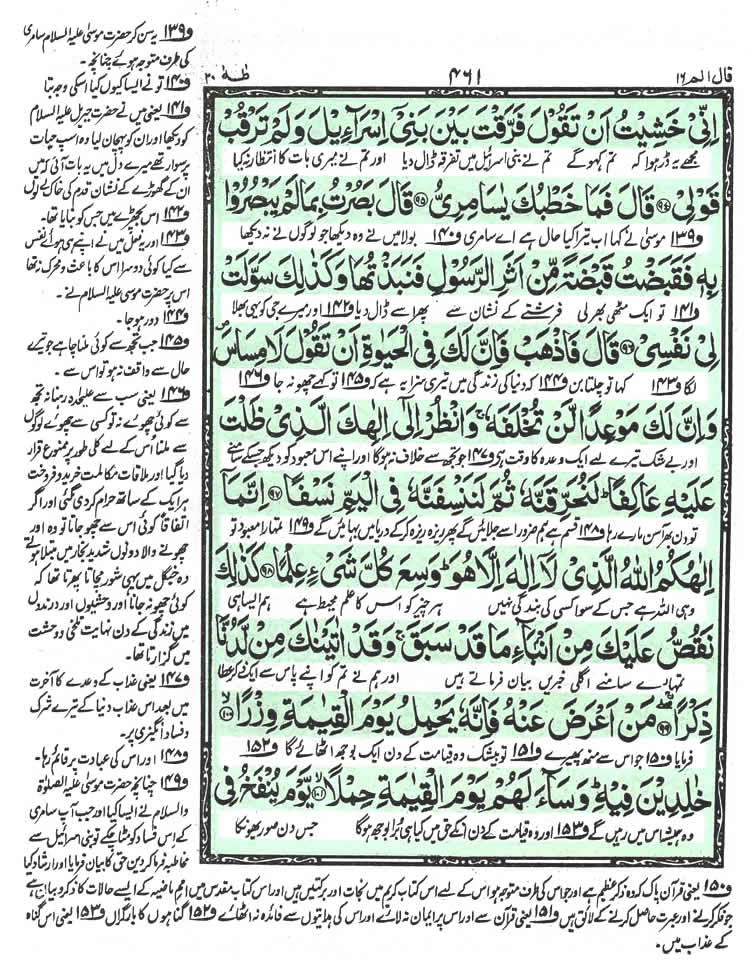 قال الم ١٦
۴۶۱
طٰهٰ ۲۰
اِنِّیْ خَشِیْتُ اَنْ تَقُوْلَ فَرَّقْتَ بَیْنَ بَنِیْۤ اِسْرَآءِیْلَ وَلَمْ تَرْقُبْ
مجھے یہ ڈر ہوا کہ تم کہو گے تم نے بنی اسرائیل میں تفرقہ ڈال دیا اور تم نے میری بات کا انتظار نہ کیا
قَوْلِیْ ﴿۹۴﴾ قَالَ فَمَا خَطْبُكَ یٰسَامِرِیُّ ﴿۹۵﴾ قَالَ بَصُرْتُ بِمَا لَمْ یَبْصُرُوْا
و۱۳۹ موسیٰ نے کہا اب تیرا کیا حال ہے اے سامری و۱۴۰ بولا میں نے وہ دیکھا جو لوگوں نے نہ دیکھا
بِهٖ فَقَبَضْتُ قَبْضَةً مِّنْ اَثَرِ الرَّسُوْلِ فَنَبَذْتُهَا وَكَذٰلِكَ سَوَّلَتْ
و۱۴۱ تو ایک مٹھی بھر لی فرشتے کے نشان سے پھر اسے ڈال دیا و۱۴۲ اور میرے جی کو یہی بھلا
لِیْ نَفْسِیْ ﴿۹۶﴾ قَالَ فَاذْهَبْ فَاِنَّ لَكَ فِی الْحَیٰوةِ اَنْ تَقُوْلَ لَا مِسَاسَ
لگا و۱۴۳ کہا تو چلتا بن و۱۴۴ کہ دنیا کی زندگی میں تیری سزا یہ ہے کہ و۱۴۵ تو کہے چھو نہ جا و۱۴۶
وَاِنَّ لَكَ مَوْعِدًا لَّنْ تُخْلَفَهٗ ۚ وَانْظُرْ اِلٰۤی اِلٰهِكَ الَّذِیْ ظَلْتَ
اور بے شک تیرے لیے ایک وعدہ کا وقت ہے و۱۴۷ جو تجھ سے خلاف نہ ہوگا اور اپنے اس معبود کو دیکھ جس کے سامنے
عَلَیْهِ عَاكِفًا ؕ لَنُحَرِّقَنَّهٗ ثُمَّ لَنَنْسِفَنَّهٗ فِی الْیَمِّ نَسْفًا ﴿۹۷﴾ اِنَّمَاۤ
تو دن بھر آسن مارے رہا و۱۴۸ قسم ہے ہم ضرور اسے جلائیں گے پھر ریزہ ریزہ کر کے دریا میں بہائیں گے و۱۴۹ تمہارا معبود تو
اِلٰهُكُمُ اللّٰهُ الَّذِیْ لَاۤ اِلٰهَ اِلَّا هُوَ ؕ وَسِعَ كُلَّ شَیْءٍ عِلْمًا ﴿۹۸﴾ كَذٰلِكَ
وہی اللہ ہے جس کے سوا کسی کی بندگی نہیں ہر چیز کو اس کا علم محیط ہے ہم ایسا ہی
نَقُصُّ عَلَیْكَ مِنْ اَنْۢبَآءِ مَا قَدْ سَبَقَ ۚ وَقَدْ اٰتَیْنٰكَ مِنْ لَّدُنَّا
تمہارے سامنے اگلی خبریں بیان فرماتے ہیں اور ہم نے تم کو اپنے پاس سے ایک ذکر عطا
ذِكْرًا ﴿۹۹﴾ مَنْ اَعْرَضَ عَنْهُ فَاِنَّهٗ یَحْمِلُ یَوْمَ الْقِیٰمَةِ وِزْرًا ﴿۱۰۰﴾
فرمایا و۱۵۰ جو اس سے منھ پھیرے و۱۵۱ تو بیشک وہ قیامت کے دن ایک بوجھ اٹھائے گا و۱۵۲
خٰلِدِیْنَ فِیْهِ ؕ وَسَآءَ لَهُمْ یَوْمَ الْقِیٰمَةِ حِمْلًا ﴿۱۰۱﴾ یَّوْمَ یُنْفَخُ فِی
وہ ہمیشہ اس میں رہیں گے و۱۵۳ اور وہ قیامت کے دن انکے حق میں کیا ہی بُرا بوجھ ہوگا جس دن صور پھونکا
و۱۳۹ یہ سن کر حضرت موسیٰ علیہ السلام سامری
کی طرف متوجہ ہوئے چنانچہ۔
و۱۴۰ تو نے ایسا کیوں کیا اسکی وجہ بتا
و۱۴۱ یعنی میں نے حضرت جبریل علیہ السلام
کو دیکھا اور ان کو پہچان لیا وہ اسپ حیات
پر سوار تھے میرے دل میں یہ بات آئی کہ میں
ان کے گھوڑے کے نشان قدم کی خاک لے لوں
و۱۴۲ اس بچھڑے میں جس کو بنایا تھا۔
و۱۴۳ اور یہ فعل میں نے اپنے ہی ہوائے نفس
سے کیا کوئی دوسرا اس کا باعث و محرک نہ تھا
اس پر حضرت موسیٰ علیہ السلام نے۔
و۱۴۴ دور ہو جا۔
و۱۴۵ جب تجھ سے کوئی ملنا چاہے جو تیرے
حال سے واقف نہ ہو تو اس سے۔
و۱۴۶ یعنی سب سے علیحدہ رہنا نہ تجھ
سے کوئی چھوئے نہ تو کسی سے چھوئے لوگوں
سے ملنا اس کے لیے کلی طور پر ممنوع قرار
دیا گیا اور ملاقات مکالمت خرید و فروخت
ہر ایک کے ساتھ حرام کر دی گئی اور اگر
اتفاقاً کوئی اس سے چھو جاتا تو وہ اور
چھونے والا دونوں شدید بخار میں مبتلا ہوتے
وہ جنگل میں یہی شور مچاتا پھرتا تھا کہ
کوئی چھو نہ جانا اور وحشیوں اور درندوں
میں زندگی کے دن نہایت تلخی و وحشت
میں گزارتا تھا۔
و۱۴۷ یعنی عذاب کے وعدے کا آخرت
میں بعد اس عذاب دنیا کے تیرے شرک
و فساد انگیزی پر۔
و۱۴۸ اور اس کی عبادت پر قائم رہا۔
و۱۴۹ چنانچہ حضرت موسیٰ علیہ الصلوٰۃ
والسلام نے ایسا کیا اور جب آپ سامری
کے اس فساد کو مٹا چکے تو بنی اسرائیل سے
مخاطبہ فرما کر دین حق کا بیان فرمایا اور ارشاد کیا
و۱۵۰ یعنی قرآن پاک کہ وہ ذکر عظیم ہے اور جو اس کی طرف متوجہ ہو اس کے لیے اس کتاب کریم میں نجات اور برکتیں ہیں اور اس کتاب مقدس میں امم ماضیہ کے ایسے حالات کا ذکر و بیان ہے
جو فکر کرنے اور عبرت حاصل کرنے کے لائق ہیں و۱۵۱ یعنی قرآن سے اور اس پر ایمان نہ لائے اور اس کی ہدایتوں سے فائدہ نہ اٹھائے و۱۵۲ گناہوں کا بارگراں و۱۵۳ یعنی اس گناہ
کے عذاب میں۔